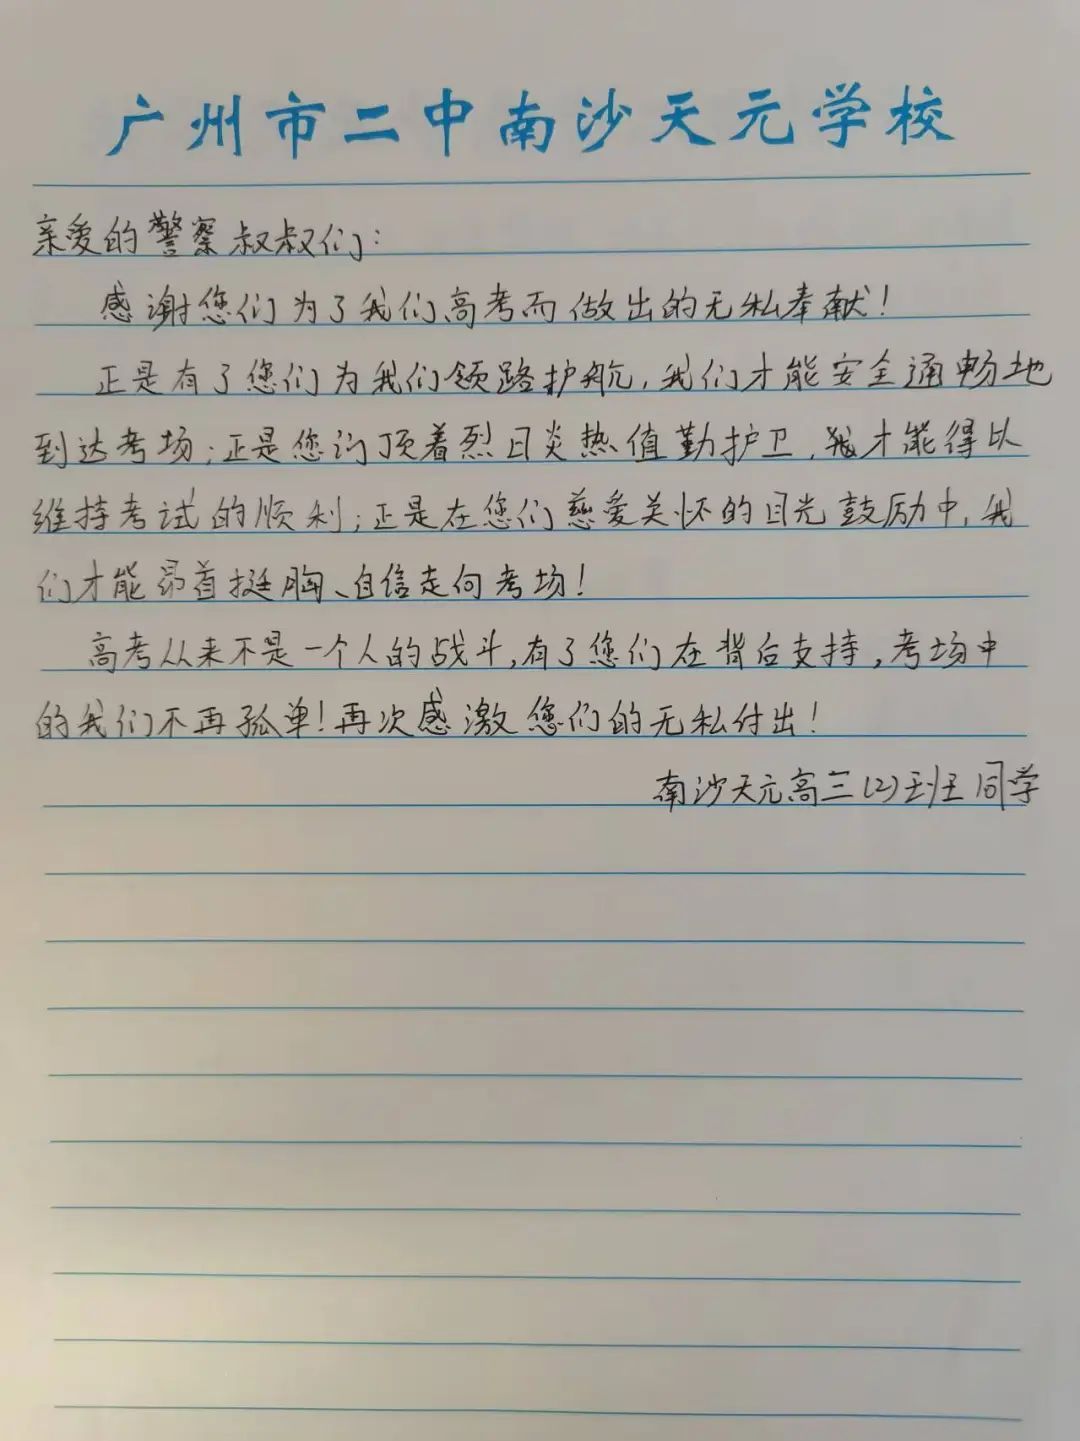 广州市二中南沙天元学校
亲爱的警察叔叔们：
感谢您们为了我们高考而做出的无私奉献！
正是有了您们为我们领路护航，我们才能安全通畅地
到达考场；正是您们顶着烈日炎热值勤护卫，我才能得以
维持考试的顺利；正是在您们慈爱关怀的目光鼓励中，我
们才能昂首挺胸、自信走向考场！
高考从来不是一个人的战斗，有了您们在背后支持，考场中
的我们不再孤单！再次感激您们的无私付出！
南沙天元高三(2)班 同学